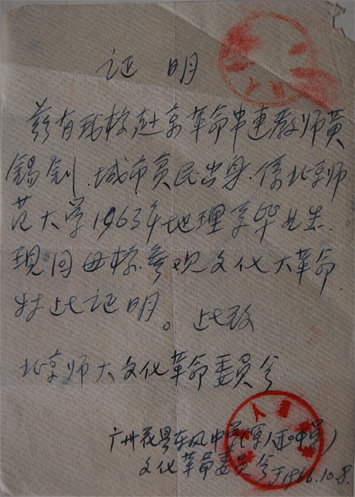 证明
兹有我校赴京革命串连教师黄
锡钊.城市贫民出身.系北京师
范大学1963年地理系毕业生.
现回母校参观文化大革命.
特此证明。此致
北京师大文化革命委员会
广州花县东风中学
文化革命委员会 于1966.10.8.